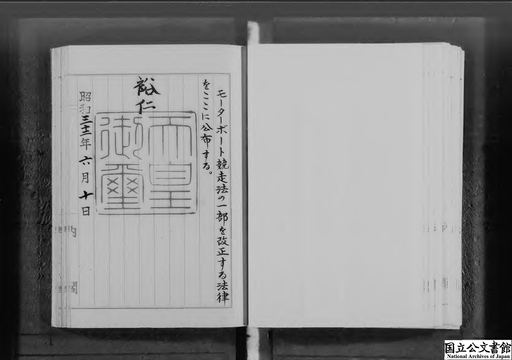 モーターボート競走法の一部を改正する法律
をここに公布する。
裕仁
天皇
御璽
昭和三十二年六月十日
内閣
国立公文書館
National Archives of Japan